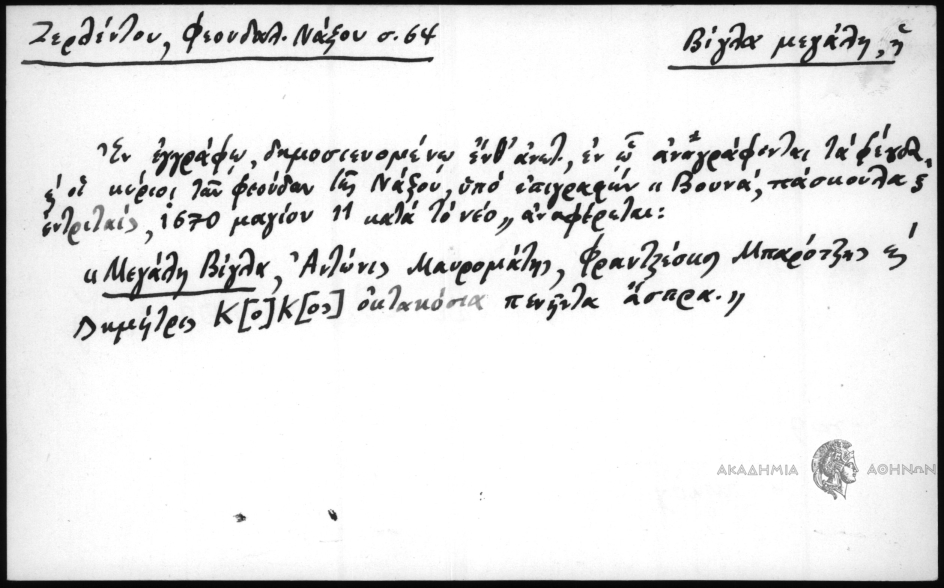 Ζερλέντου, Φεουδαλ. Νάξου σ. 64
Βίγλα μεγάλη, ἡ
Ἐν ἐγγράφῳ, δημοσιευομένῳ ἔνθ' ἀνωτ., ἐν ᾧ ἀναγράφονται τὰ φέουδα,
ϗ οἱ κύριοι τῶν φεούδων τῆς Νάξου, ὑπὸ ἐπιγραφὴν « Βουνά, πάσκουλα ϗ
ἐντριταίς, 1670 μαγίου 11 κατὰ τὸ νέο,, ἀναφέρεται:
« Μεγάλη Βίγλα, Ἀντώνις Μαυρομάτης, Φραντζέσκος Μπαρότζης ϗ
Δημήτρις Κ[ο]Κ[ος] ὀκτακόσια πενῆντα ἄσπρα.,,
ΑΚΑΔΗΜΙΑ ΑΘΗΝΩΝ